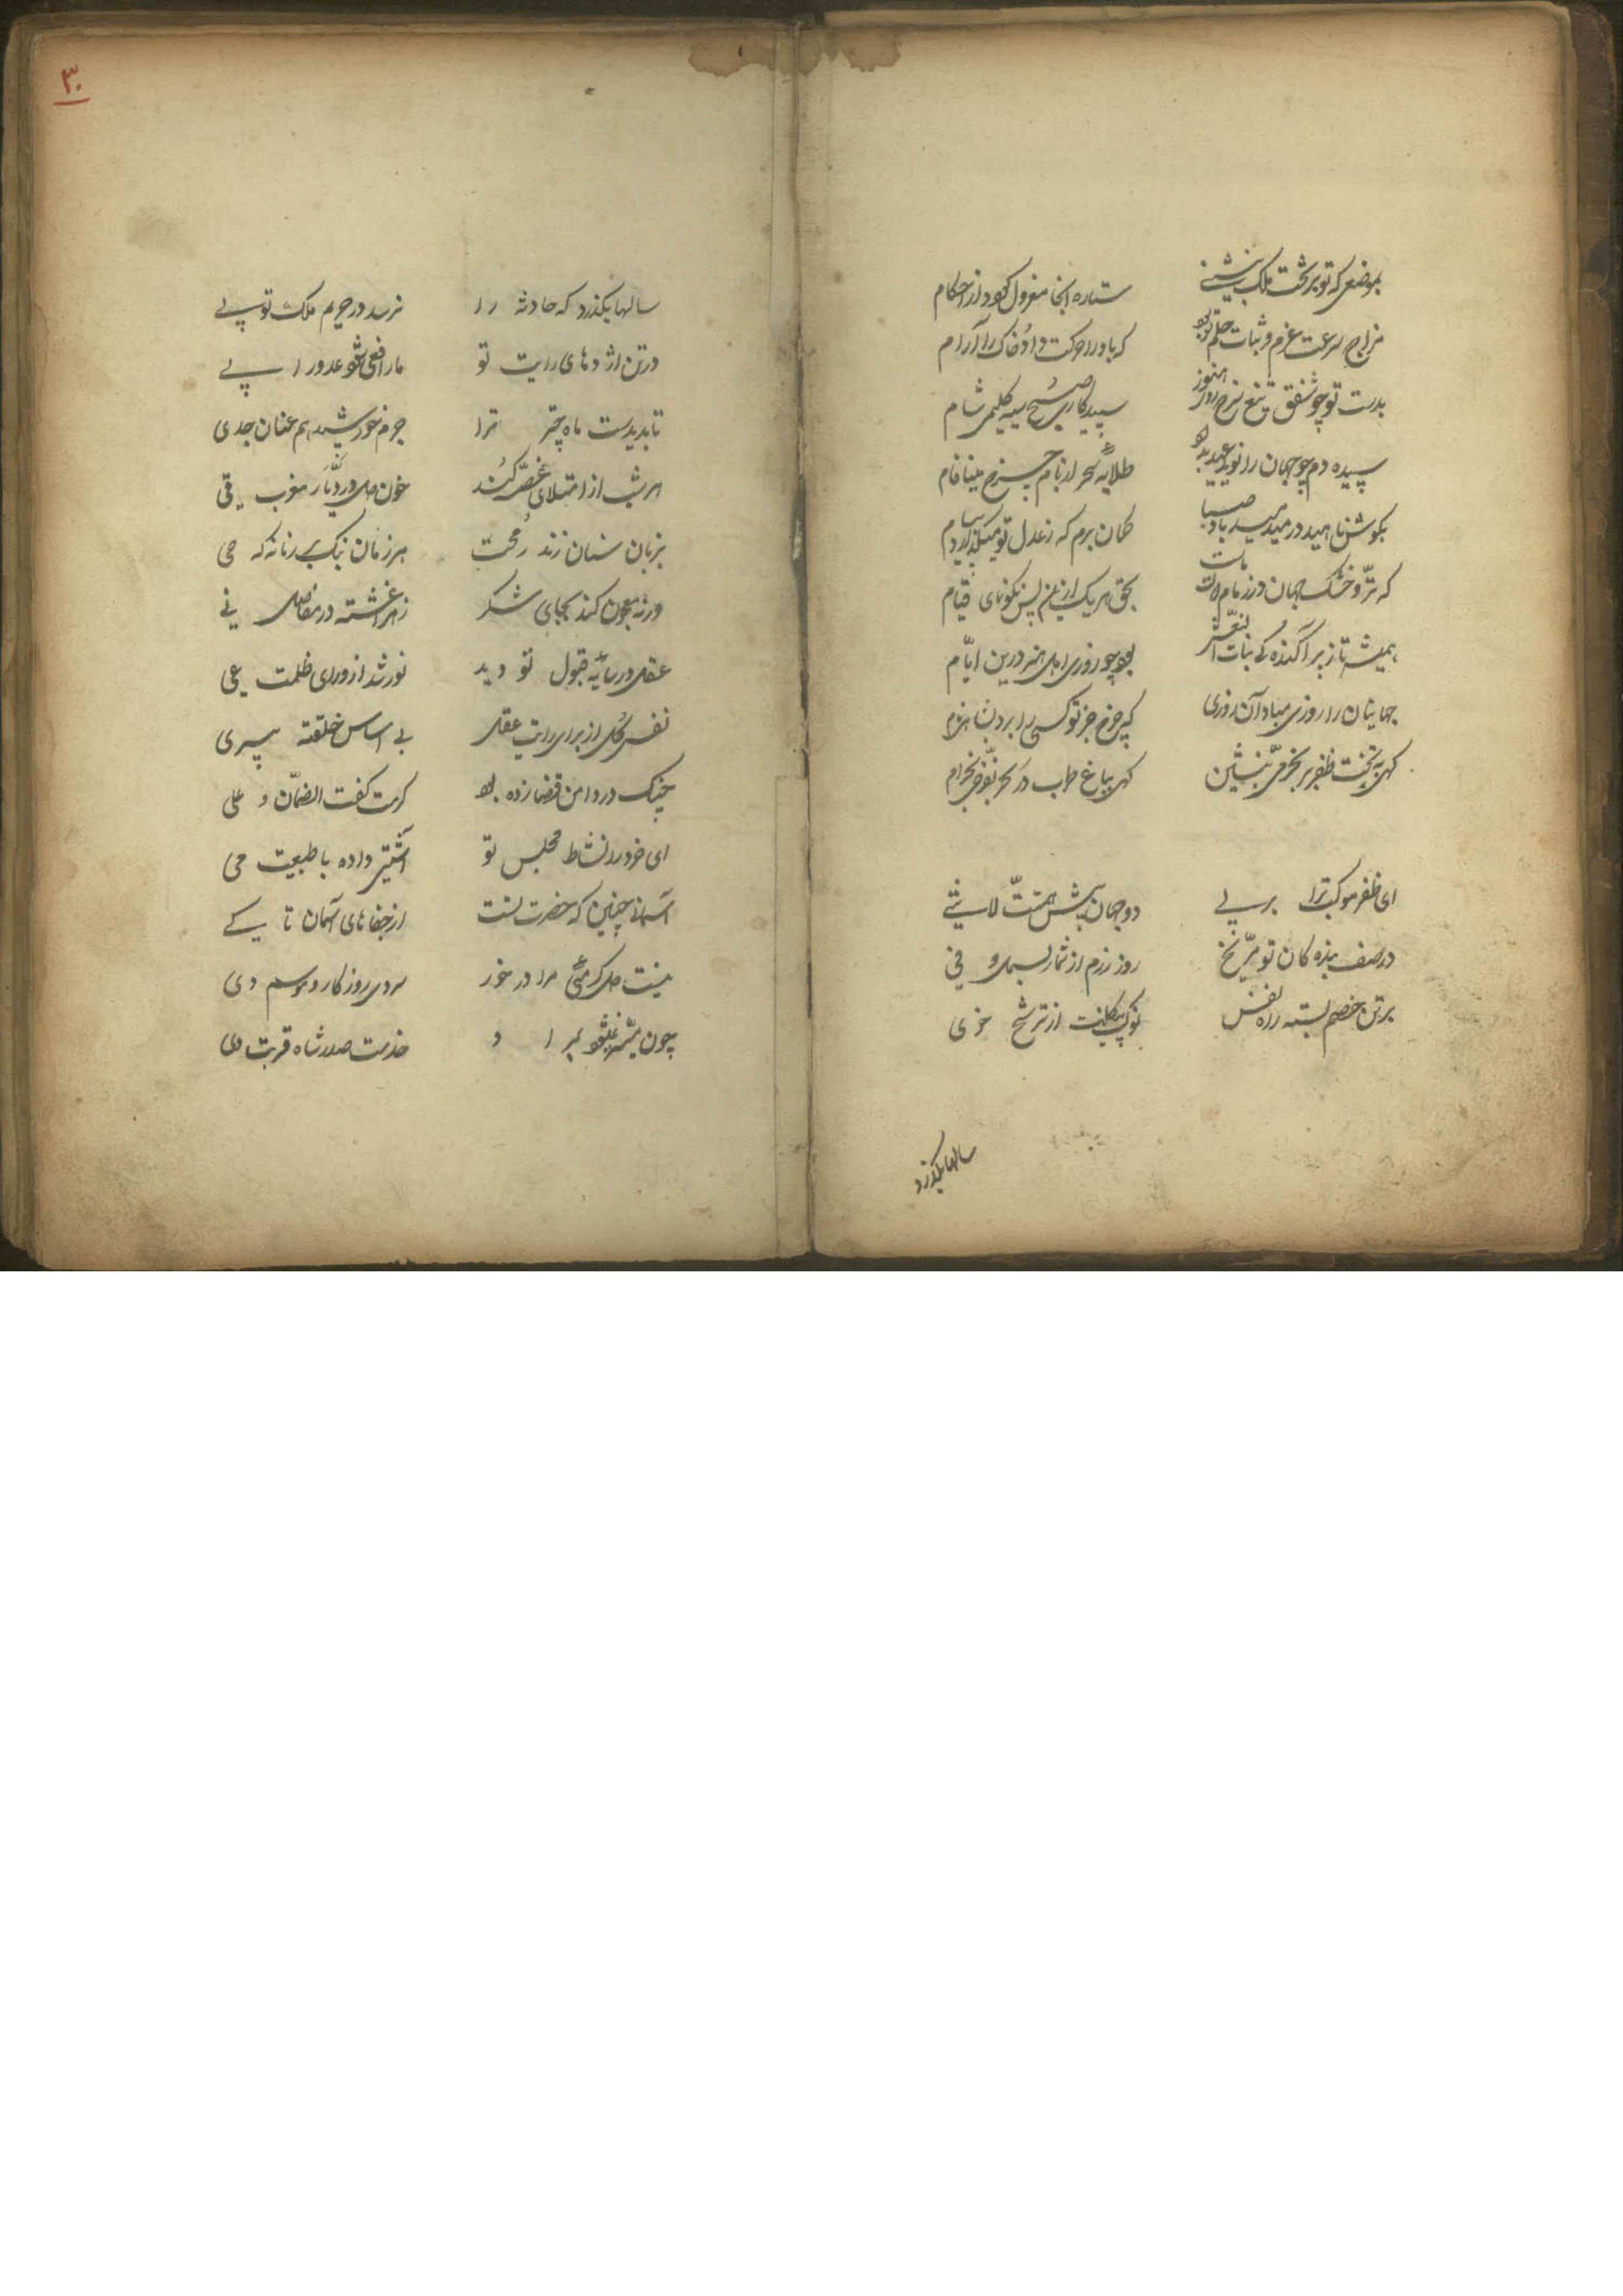 بموضعی که تو بر تخت ملک بنشینی ستاره آنجا معزول گردد از احکام
مزاج سرعت عزم و ثبات حلم تو بود که باد را حرکت داد و خاک را آرام
بدست تو چو شفق تیغ سرخ روز هنوز سپیدکاری صبح سیه کلیم شام
سپیده دم چو جهان را نوید عید بداد طلایه سحر از بام چرخ مینا فام
بکوش ناهید در میدمید باد صبا
که تر و خشک جهان در زمام
همیشه تا ز پراکندگی بنات النعش بود چو روزی اهل هنر درین ایام
جهانیان را روزی مباد آن روزی که چرخ جز تو کسی را برد
کهی به تخت ظفر بر بخرمی بنشین کهی بباغ طرب در بخرام
ای ظفر موکب ترا بر پی دو جهان پیش همتت لا شی
در صف بنده کان تو مریخ روز رزم از شمار
بر تن خصم بسته راه نفس نوک پیکانت از ترشح خوی
سالها بگذرد
۳۰
سالها بگذرد که حادثه را نرسد در حریم ملک تو پی
در تن اژدهای رایت تو مار افعی شود عدو را پی
تا بدیدست ماه چتر ترا جرم خورشید هم عنان جدی
هر شب از امتلای غصه کند خون دل در دیار مغرب قی
بزبان سنان زند رمحت هر زمان بانگ بر زمانه که هی
ورنه معجون کند بجای شکر زهر اغشته در مفاصل نی
عقل در سایه قبول تو دید نور رشد از ورای ظلمت غی
نفس کل از برای رایت عقل بی اساس خلقته سپری
چنک در دامن قضا زده بود کرمت کفت الضمان علی
ای خرد را نشاط مجلس تو آشتی داده با طبیعت می
آسمانا چنین که حضرت تست از جفاهای آسمان تا کی
نیست دل کرمئی مرا در خور سردی روزکار و موسم دی
چون میسر نمیشود خدمت صدر شاه